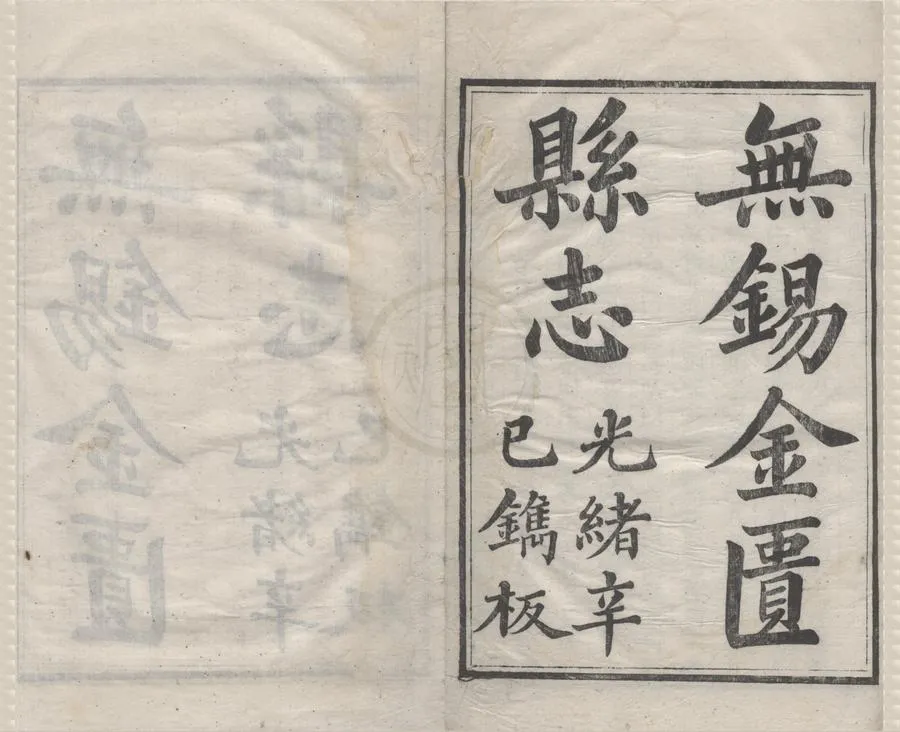 無錫金匱
縣志
光緒辛
巳鐫板